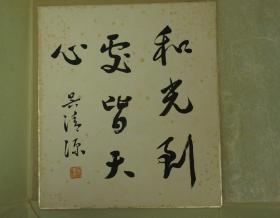 和光到
處皆天
心
吳清源